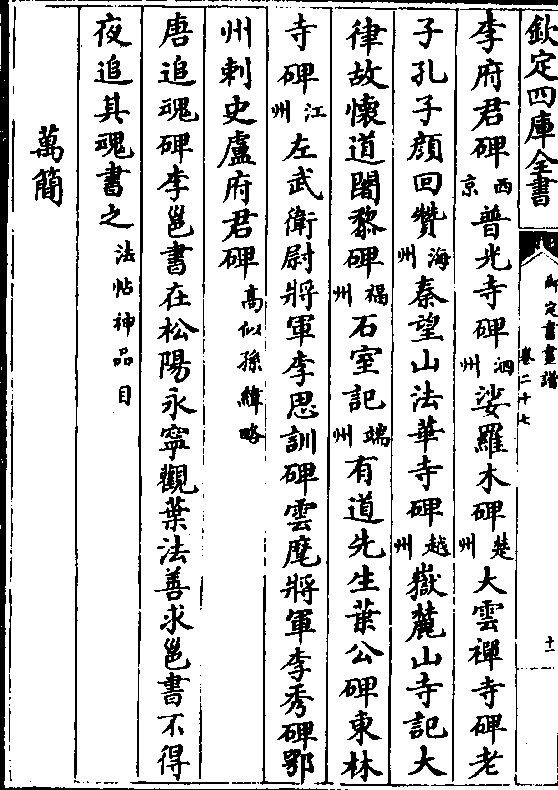 欽定四庫全書
御定書畫譜
卷二十七
十一
李府君碑西京普光寺碑泗州娑羅木碑楚州大雲禪寺碑老
子孔子顔回贊海州秦望山法華寺碑越州嶽麓山寺記大
律故懷道闍黎碑福州石室記端州有道先生葉公碑東林
寺碑江州左武衛尉將軍李思訓碑雲麾將軍李秀碑鄂
州刺史盧府君碑高似孫緯略
唐追魂碑李邕書在松陽永寧觀葉法善求邕書不得
夜追其魂書之法帖神品目
萬簡